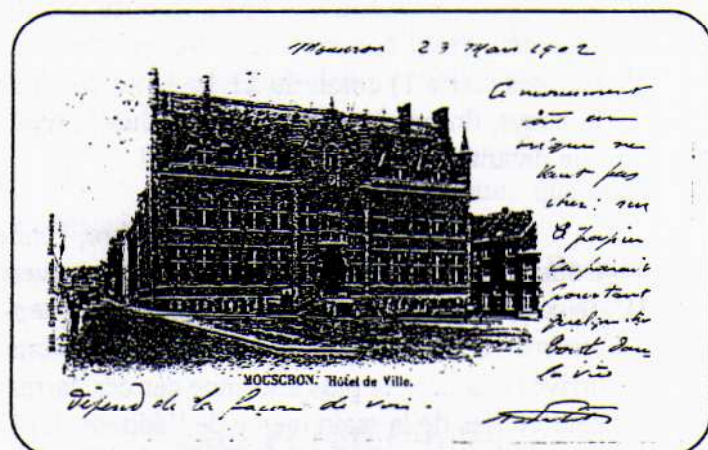 Mouscron 23 Mars 1902
Ce monument
vu en
brique ne
vaut pas
cher: sur
le papier
il paraît
pourtant
quelque
dans
la vie
MOUSCRON. Hôtel de Ville.
Dépend de la façon de voir.